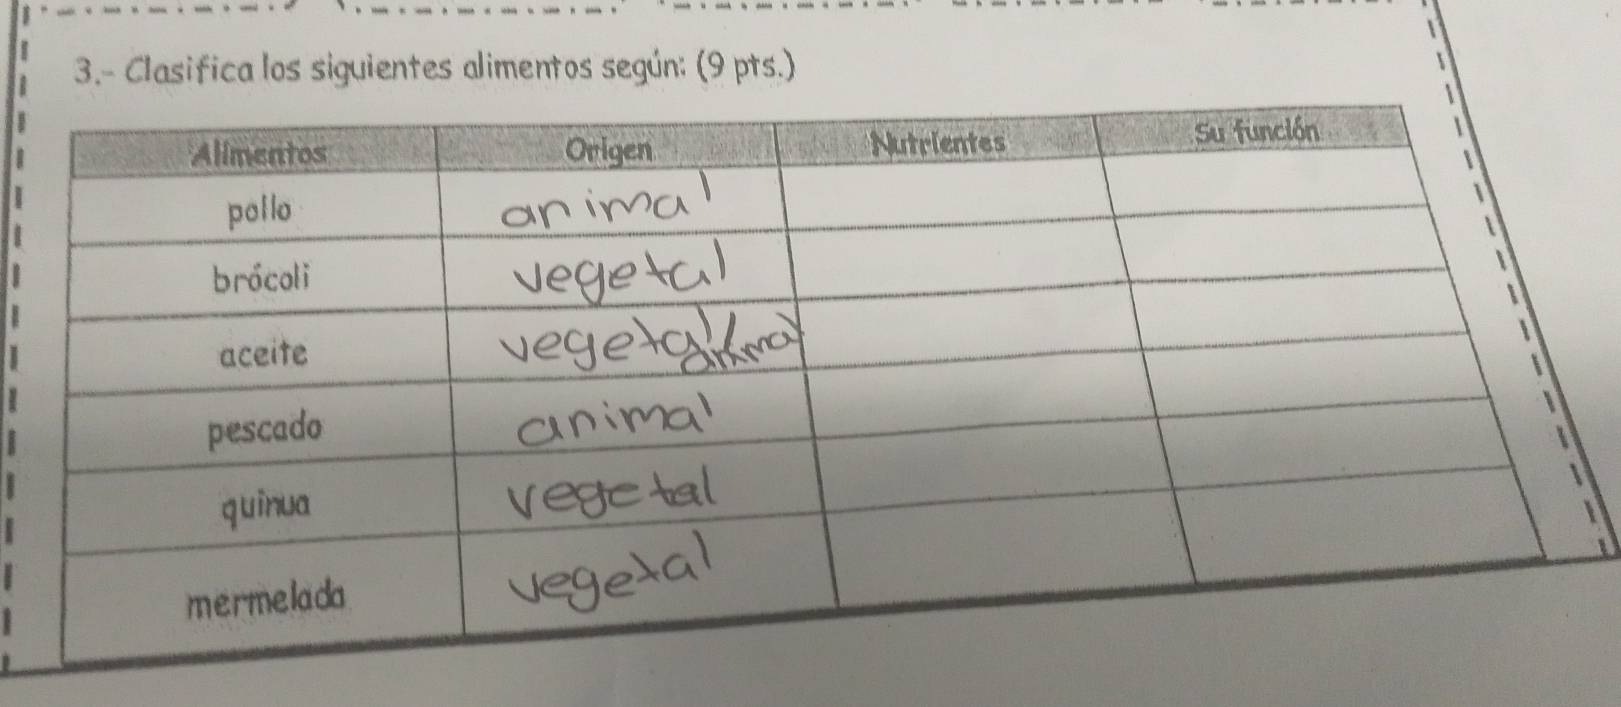 3.- Clasifica los siguientes alimentos según: (9 pts.)
Alimentos Origen Nutrientes Su función
pollo animal
brócoli vegetal
aceite vegetal/animal
pescado animal
quinua vegetal
mermelada vegetal